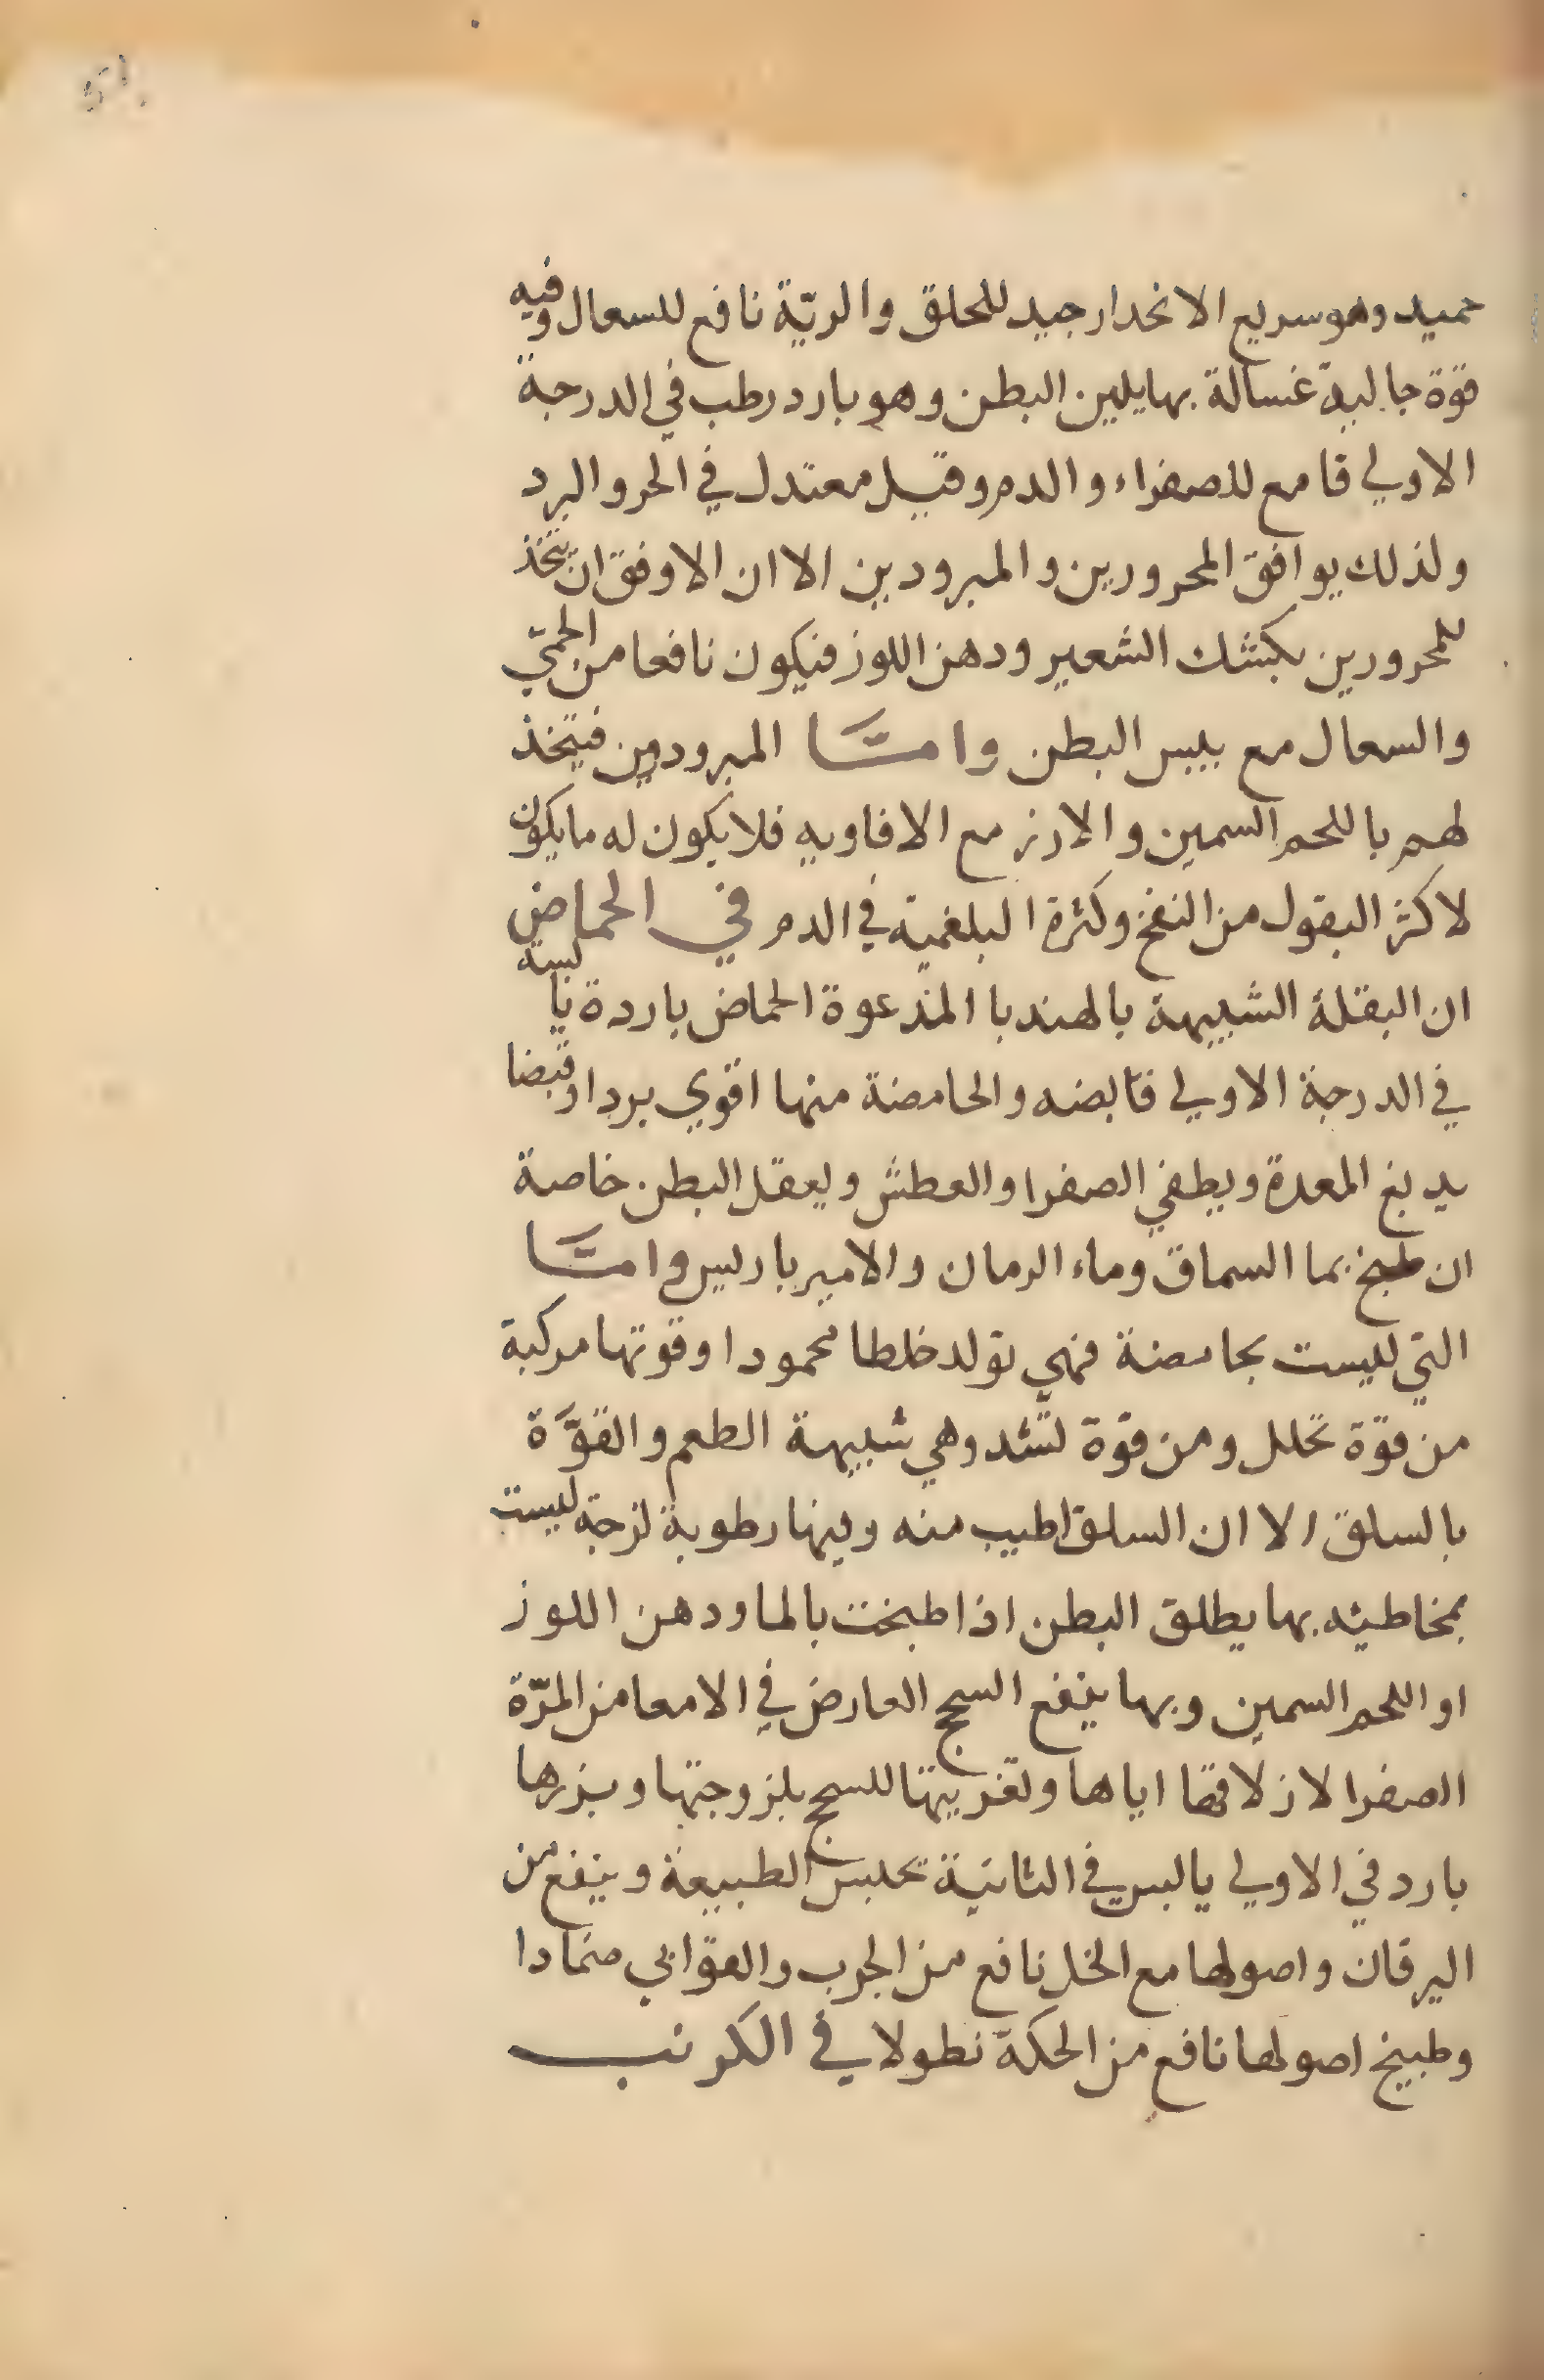 حميد وهو سريع الانحدار جيد للحلق والريّة نافع للسعال وفيه
قوّة جالية غسالة بها يلين البطن وهو بارد رطب في الدرجة
الاولي قامع للصفراء والدم وقيل معتدل في الحر والبرد
ولذلك يوافق المحرورين والمبرودين الا ان الاوفق ان يتخذ
للمحرورين بكشك الشعير ودهن اللوز فيكون نافعا من الحمّي
والسعال مع يبس البطن وامّا المبرودين فيتخذ
لهم باللحم السمين والارز مع الافاويه فلا يكون له ما يكون
لاكثر البقول من النفخ وكثرة البلغمية في الدم في الحماض
ان البقلة الشبيهة بالهندبا المدعوة الحماض باردة يابسة
في الدرجة الاولي قابضه والحامضة منها اقوي بردا وقبضا
يدبغ المعدة ويطفي الصفرا والعطش ويعقل البطن خاصة
ان طبخ بما السماق وماء الرمان والاميرباريس وامّا
التي ليست بحامضة فهي تولد خلطا محمودا وقوتها مركبة
من قوّة تحلل ومن قوّة تشد وهي شبيهة الطعم والقوَّة
بالسلق الا ان السلق اطيب منه وفيها رطوبة لزجة ليست
بمخاطيه بها يطلق البطن اذا طبخت بالما ودهن اللوز
او اللحم السمين وبها ينفع السحج العارض في الامعا من المرّة
الصفرا لازلاقها اياها ولتغريتها للسحج بلزوجتها وبزرها
بارد في الاولي يابس في الثانية تحبس الطبيعة وينفع من
اليرقان واصولها مع الخل نافع من الجرب والقوابي ضمادا
وطبيخ اصولها نافع من الحكة نطولا في الكرنب